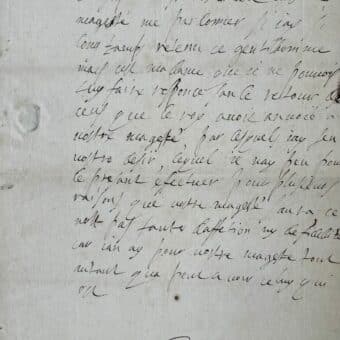 magesté me pardonner si iay si
long temps retenu ce gentilhomme
mais cest madame que ie ne pouvois
luy faire response sans le retour de
ceus que le roy avoit anvoié à
vostre magesté par lesquels iay seu
vostre desir lequel ie nay peu pour
le present efectuer pour plusieurs
raisons que vostre magesté aura ce
nest pas faute daffection ny de fidelité
car ien ay pour vostre magesté tout
autant que peut avoir celuy qui
est